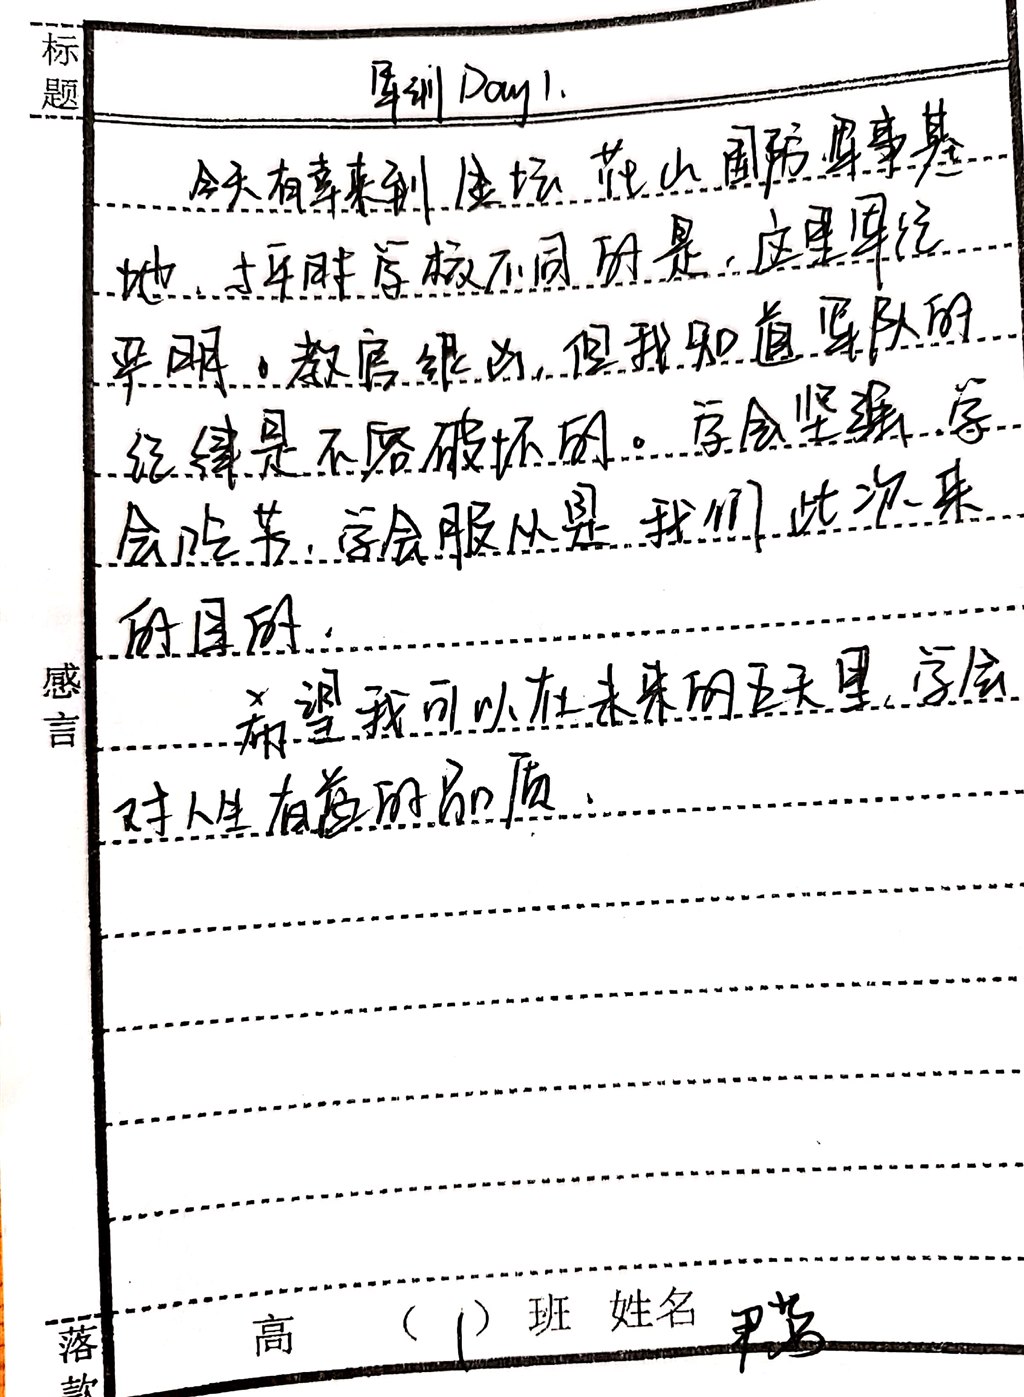 标题
军训 Day 1.
今天有幸来到金坛茅山国防军事基
地,与平时学校不同的是,这里军纪
严明。教官很凶,但我知道军队的
纪律是不容破坏的。学会坚强,学
会吃苦,学会服从是我们此次来
的目的.
感言
希望我可以在未来的五天里,学会
对人生有益的品质.
落款
高 (1) 班 姓名 尹